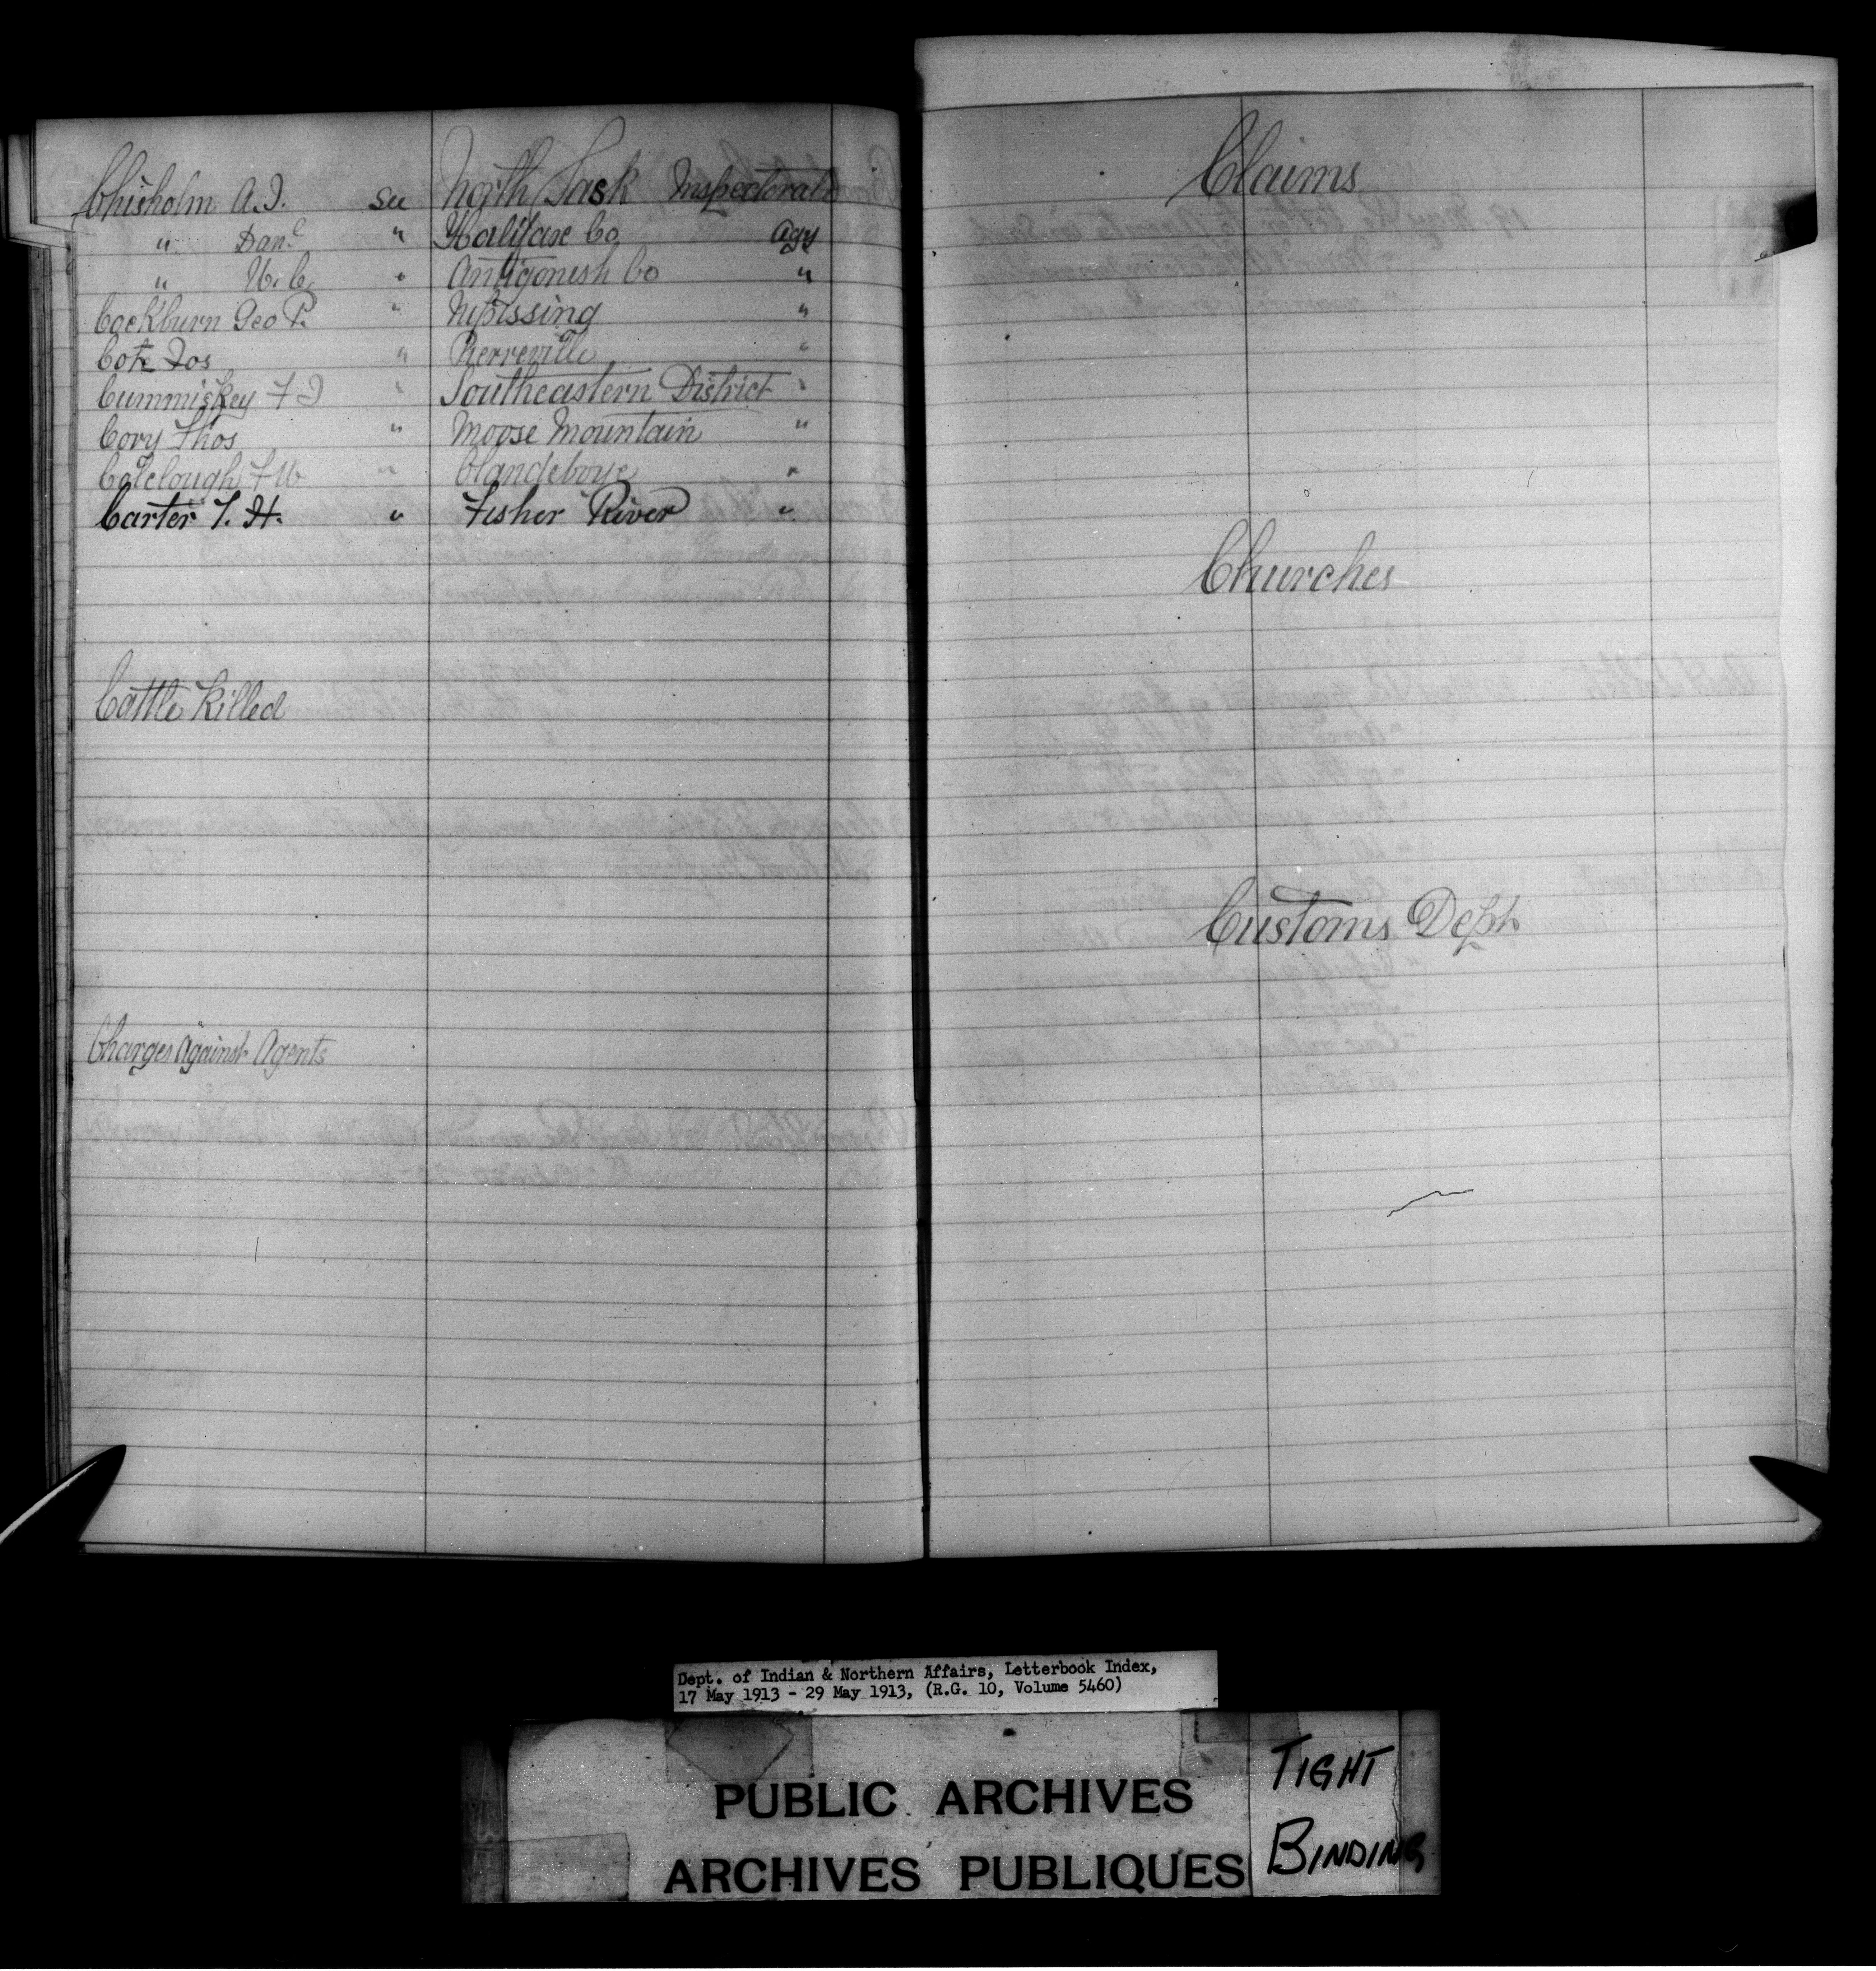 Chisholm A.J. see North Sask Inspectorate
" Danl " Halifax Co. Agy
" W.C. " Antigonish Co "
Cockburn Geo P. " Nipissing "
Cote Jos " Pierreville "
Cummiskey F J " Southeastern District "
Cory Thos " Moose Mountain "
Colclough F W " Clandeboye "
Carter T. H. " Fisher River "
Cattle Killed
Charges Against Agents
Claims
Churches
Customs Dept.
Dept. of Indian & Northern Affairs, Letterbook Index,
17 May 1913 - 29 May 1913, (R.G. 10, Volume 5460)
PUBLIC ARCHIVES
ARCHIVES PUBLIQUES
TIGHT
BINDING